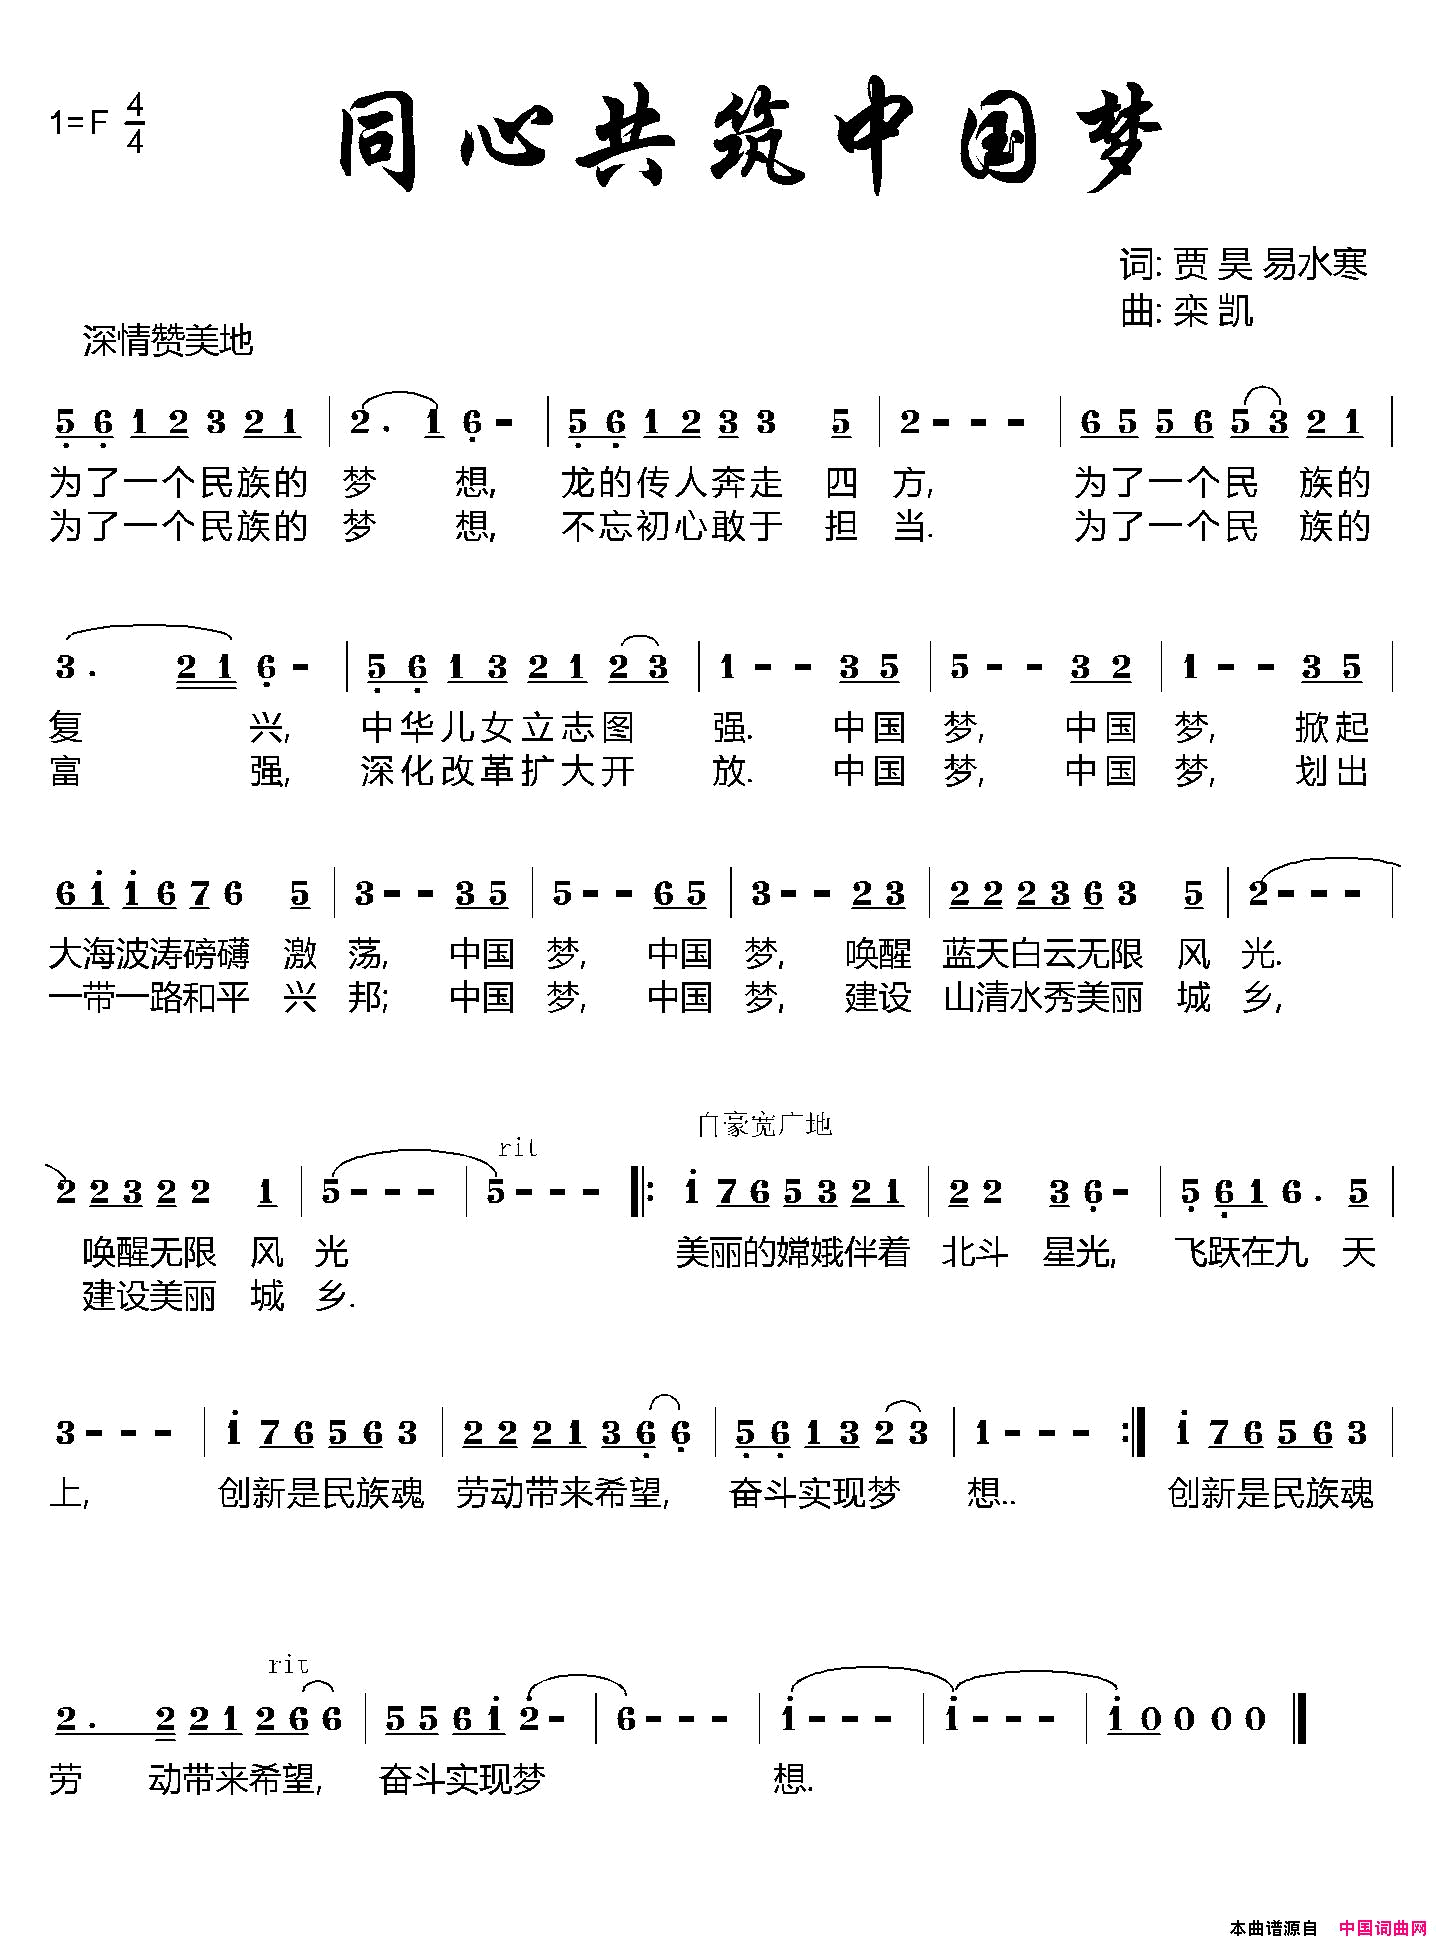 1=F 4/4
同心共筑中国梦
词: 贾 昊 易水寒
曲: 栾 凯
深情赞美地
5 6 1 2 3 2 1 | 2 . 1 6 - | 5 6 1 2 3 3 5 | 2 - - - | 6 5 5 6 5 3 2 1 |
为了一个民族的 梦 想, 龙的传人奔走 四 方, 为了一个民 族的
为了一个民族的 梦 想, 不忘初心敢于 担 当. 为了一个民 族的
3 . 2 1 6 - | 5 6 1 3 2 1 2 3 | 1 - - 3 5 | 5 - - 3 2 | 1 - - 3 5 |
复 兴, 中华儿女立志图 强. 中国 梦, 中国 梦, 掀起
富 强, 深化改革扩大开 放. 中国 梦, 中国 梦, 划出
6 1 1 6 7 6 5 | 3 - - 3 5 | 5 - - 6 5 | 3 - - 2 3 | 2 2 2 3 6 3 5 | 2 - - - |
大海波涛磅礴 激 荡, 中国 梦, 中国 梦, 唤醒 蓝天白云无限 风 光.
一带一路和平 兴 邦; 中国 梦, 中国 梦, 建设 山清水秀美丽 城 乡,
自豪宽广地
rit
2 2 3 2 2 1 | 5 - - - | 5 - - - |: 1 7 6 5 3 2 1 | 2 2 3 6 - | 5 6 1 6 . 5 |
唤醒无限 风 光 美丽的嫦娥伴着 北斗 星光, 飞跃在九 天
建设美丽 城 乡.
3 - - - | 1 7 6 5 6 3 | 2 2 2 1 3 6 6 | 5 6 1 3 2 3 | 1 - - - :| 1 7 6 5 6 3 |
上, 创新是民族魂 劳动带来希望, 奋斗实现梦 想.. 创新是民族魂
rit
2 . 2 2 1 2 6 6 | 5 5 6 1 2 - | 6 - - - | 1 - - - | 1 - - - | 1 0 0 0 0 ||
劳 动带来希望, 奋斗实现梦 想.
本曲谱源自 中国词曲网